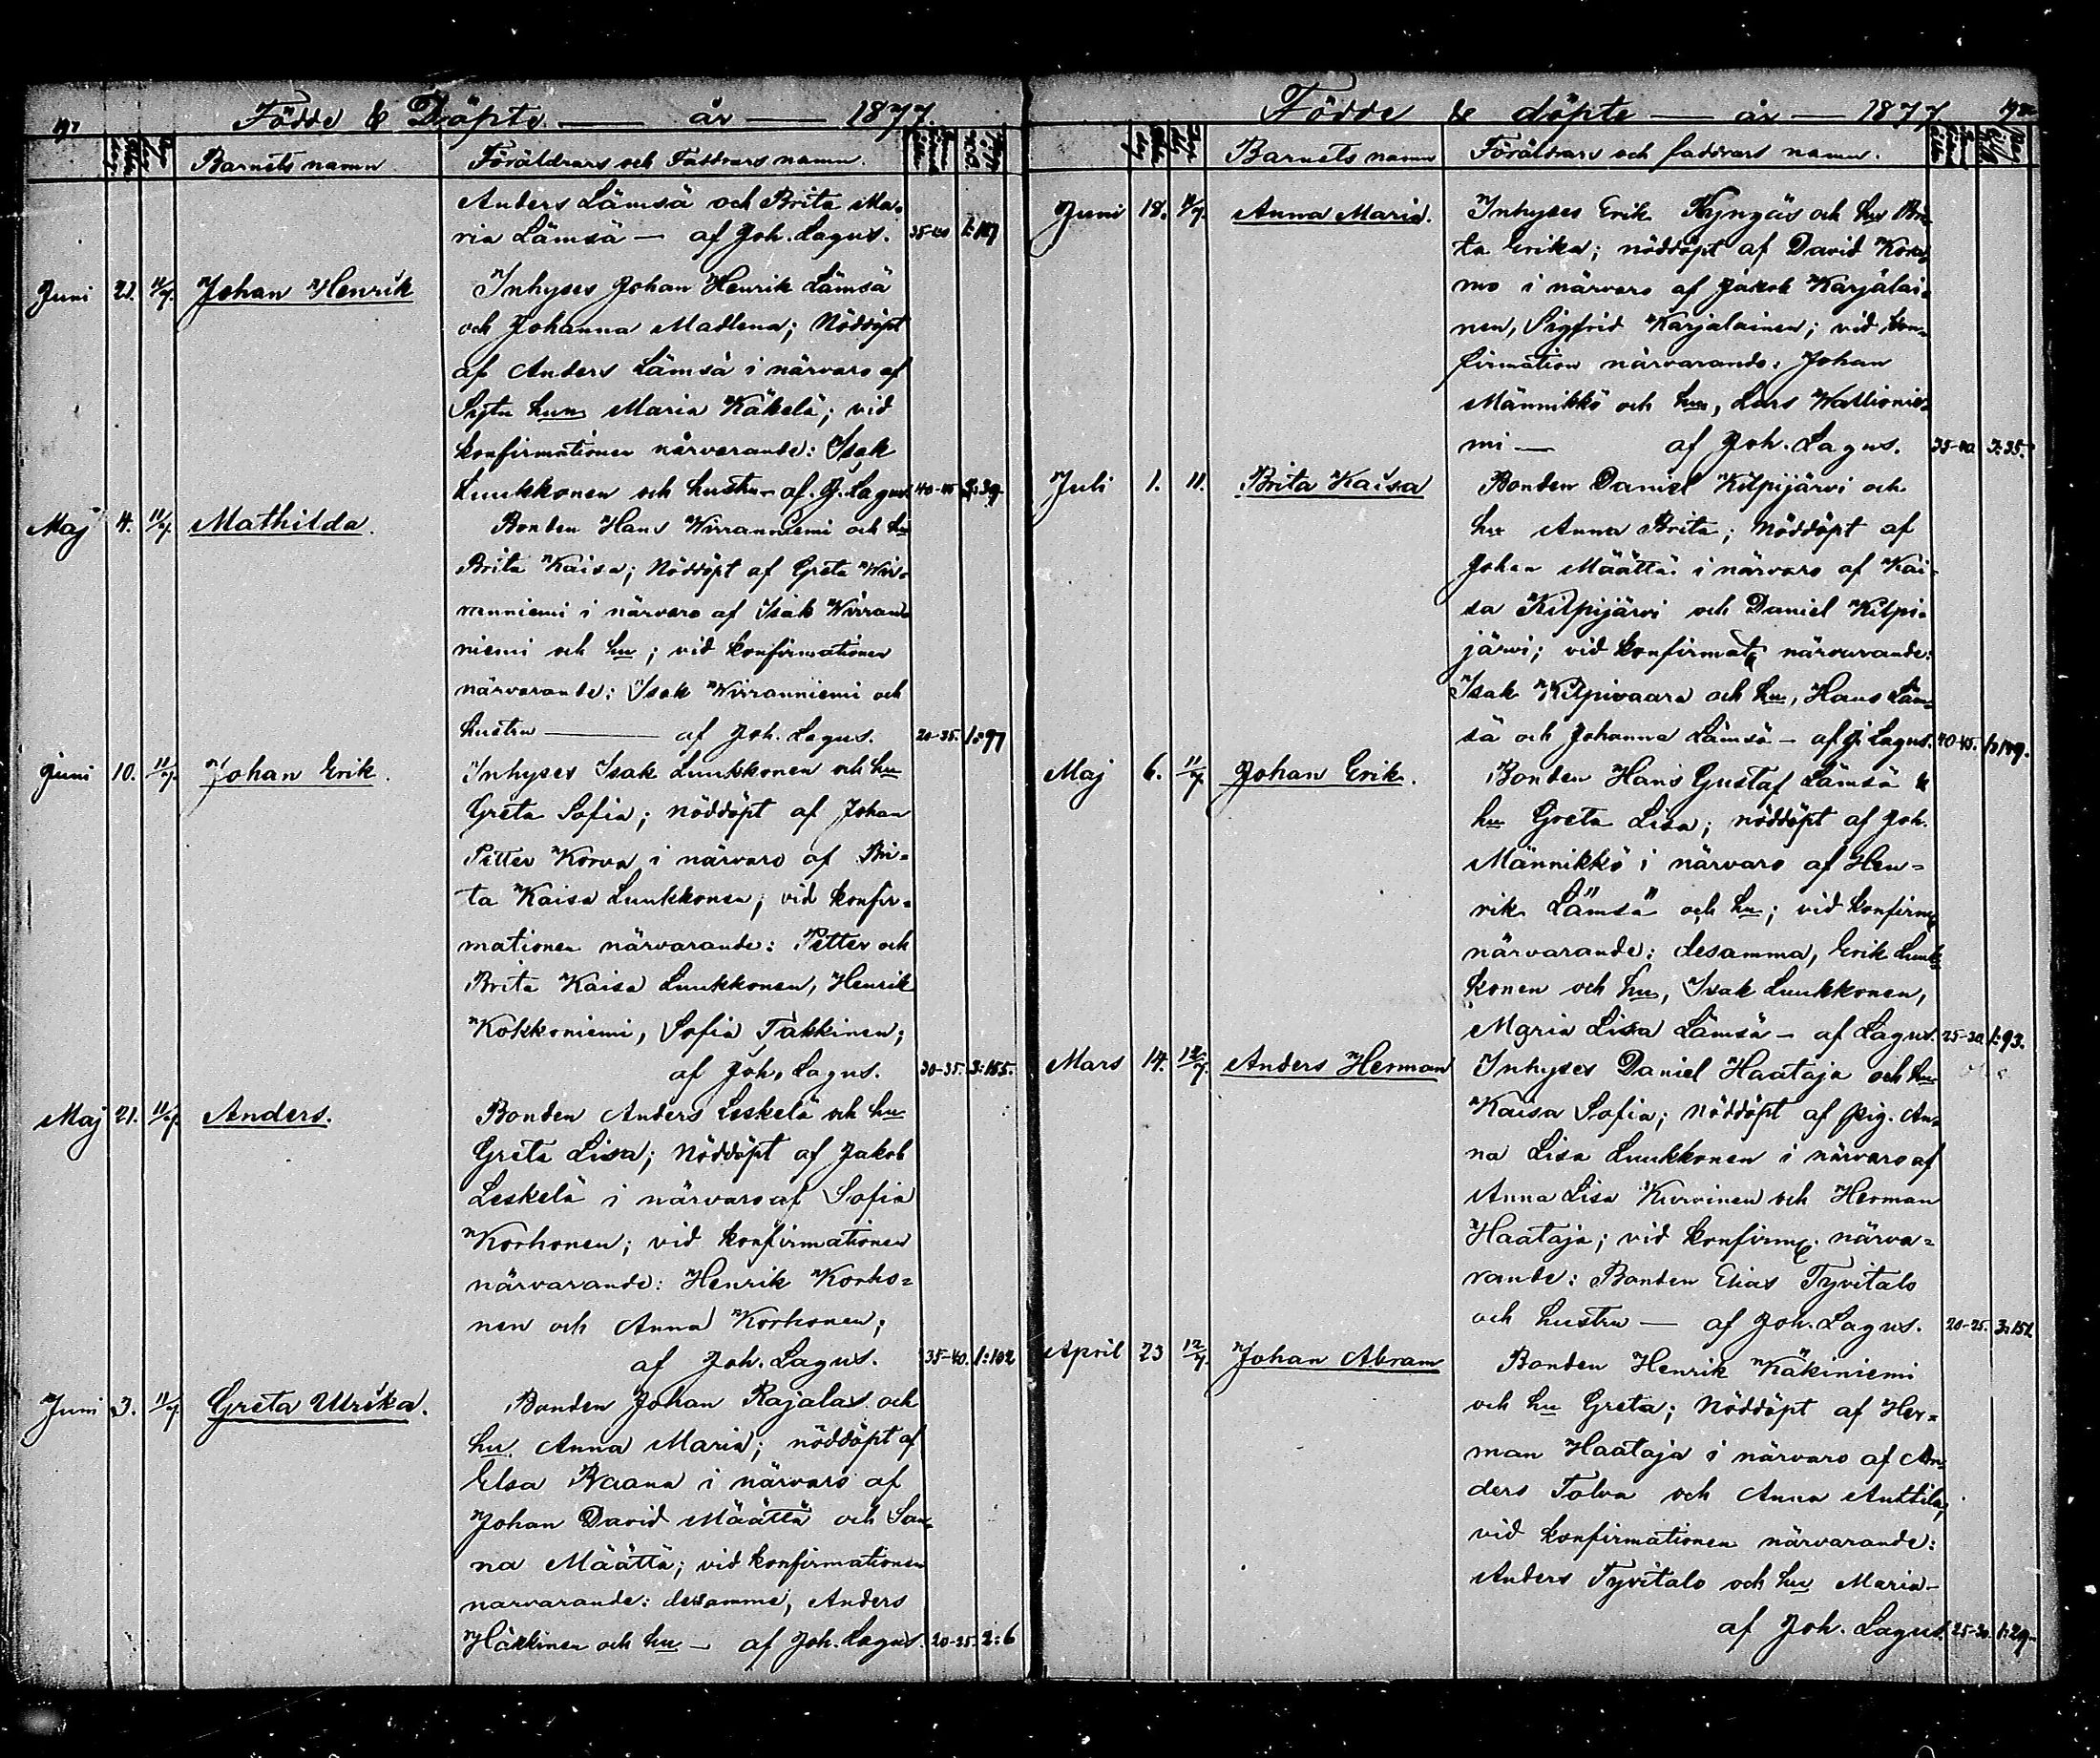 197 Födde & Döpte — år — 1877.
Barnets namn Föräldrars och Faddrars namn.
Anders Lämsä och Brita Ma=
ria Lämsä — af Joh. Lagus. 35-40 1:117
Juni 21. 11/7. Johan Henrik Inhyses Johan Henrik Lämsä
och Johanna Madlena; Nöddöpt
af Anders Lämsä i närvaro af
Sytn hu Maria Käkelä; vid
konfirmationen närvarande: Isak
Luukkonen och hustru - af J. Lagus 40-45 3:39.
Maj 4. 11/7. Mathilda. Bonden Hans Wirranniemi och hu
Brita Kaisa; Nöddöpt af Greta Wir=
ranniemi i närvaro af Isak Wirran=
niemi och hu; vid konfirmationen
närvarande: Isak Wirranniemi och
hustru — af Joh. Lagus. 20-35. 1:97
Juni 10. 11/7. Johan Erik. Inhyses Isak Luukkonen och hu
Greta Sofia; nöddöpt af Johan
Petter Korva i närvaro af Bri=
ta Kaisa Luukkonen; vid konfir=
mationen närvarande: Petter och
Brita Kaisa Luukkonen, Henrik
Kokkoniemi, Sofia Takkinen;
af Joh. Lagus. 30-35. 3:155.
Maj 21. 11/7. Anders. Bonden Anders Leskelä och hu
Greta Lisa; Nöddöpt af Jakob
Leskelä i närvaro af Sofia
Korhonen; vid konfirmationen
närvarande: Henrik Korho=
nen och Anna Korhonen;
af Joh. Lagus. 35-40. 1:102
Juni 3. 11/7. Greta Ulrika. Bonden Johan Rajalas och
hu. Anna Maria; nöddöpt af
Elsa Raana i närvaro af
Johan David Määttä och San=
na Määttä; vid konfirmationen
narvarande: desamme, Anders
Häkkinen och hu — af Joh. Lagus. 20-25. 2:6
Födde & döpte — år — 1877 198
Barnets namn Föräldrars och faddrars namn.
Juni 18. 11/7. Anna Maria. Inhyses Erik Kyngäs och hu Bri=
ta Erika; nöddöpt af David Kors=
mo i närvaro af Jakob Karjälai=
nen, Sigfrid Karjalainen; vid kon=
firmation närvarande: Johan
Männikkö och hu, Lars Wallionie=
mi — af Joh. Lagus. 35-40. 3:35.
Juli 1. 11. Brita Kaisa Bonden Daniel Kilpijärvi och
hu Anna Brita; Nöddöpt af
Johan Määttä i närvaro af Kai=
sa Kilpijärvi och Daniel Kilpi=
järvi; vid konfirmat. närvarande:
Isak Kilpivaara och hu, Hans Läm=
sä och Johanna Lämsä — af J. Lagus. 40-45. 1:149.
Maj 6. 11/7 Johan Erik. Bonden Hans Gustaf Lämsä &
hu Greta Lisa; nöddöpt af Joh.
Männikkö i närvaro af Hen=
rik Lämsä och hu; vid konfirm.
närvarande: desamma, Erik Luuk=
konen och hu, Isak Luukkonen,
Maria Lisa Lämsä — af Lagus. 25-30. 1:93.
Mars 14. 12/7. Anders Herman Inhyses Daniel Haataja och hu
Kaisa Sofia; Nöddöpt af pig. An=
na Lisa Luukkonen i närvaro af
Anna Lisa Kurvinen och Herman
Haataja; vid konfirm. närva=
rande: Bonden Elias Tyvitalo
och hustru — af Joh. Lagus. 20-25. 3:152
April 23 12/7. Johan Abram Bonden Henrik Käkiniemi
och hu Greta; Nöddöpt af Her=
man Haataja i närvaro af An=
ders Tolva och Anna Anttila;
vid konfirmationen närvarande:
Anders Tyvitalo och hu Maria —
af Joh. Lagus. 25-30. 1:29.